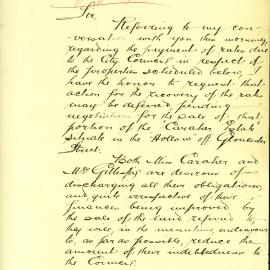 Sir,
Referring to my con-
versation with you this morning,
regarding the payment of rates due
to the City Council in respect of
the properties scheduled below, I
have the honor to request that
action for the recovery of the rates
may be deferred, pending
negotiation for the sale of that
portion of the "Caraher Estate"
situate in the Hollow off Gloucester
Street.
Both Miss Caraher and
Mr Gillespie are desirous of
discharging all their obligations,
and, quite irrespective of their
finances being improved by
the sale of the land referred to,
they will, in the meantime endeavour
to, as far as possible, reduce the
amount of their indebtedness to
the Council.